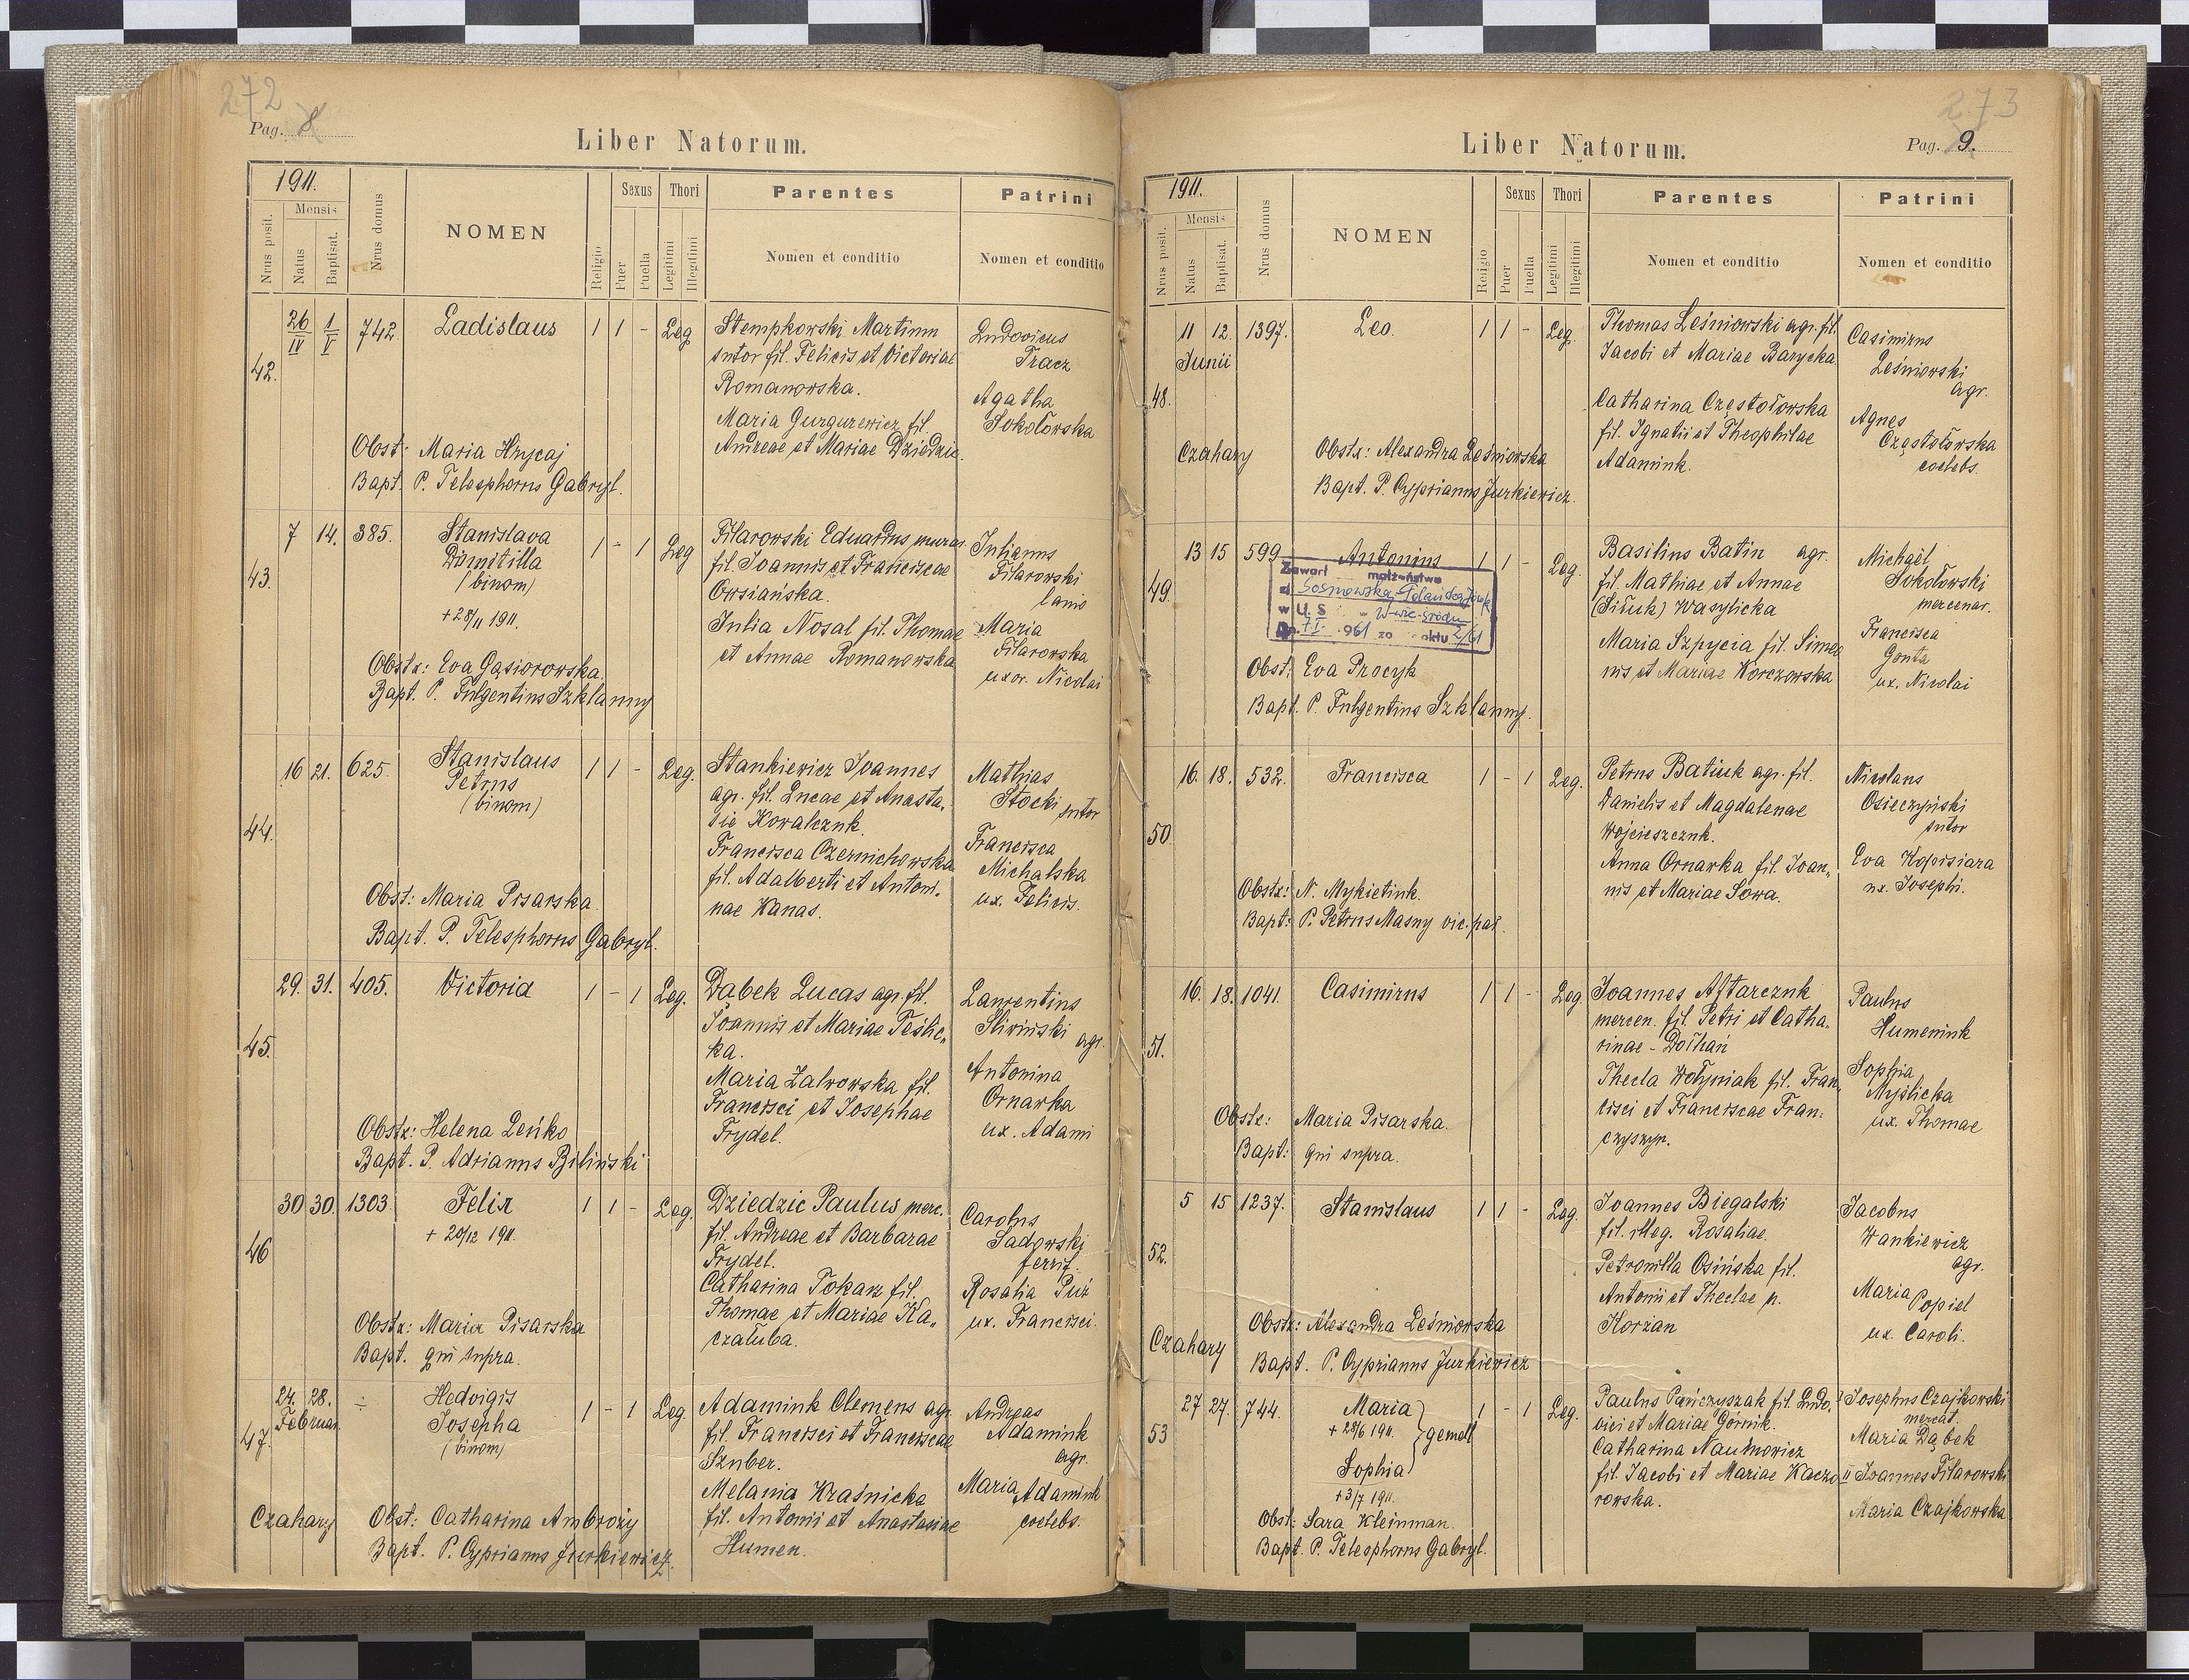 272
Pag. 8
Liber Natorum.
1911.
Nrus posit.
Mensis
Natus
Baptisat.
Nrus domus
NOMEN
Religio
Sexus
Puer
Puella
Thori
Legitimi
Illegitimi
Parentes
Nomen et conditio
Patrini
Nomen et conditio
42.
26/IV 1/V 742. Ladislaus 1 1 - Leg
Stempkowski Martinus
sutor fil. Felicis et Victoriae
Romanowska.
Maria Gurgurewicz fil.
Andreae et Mariae Dziedzic.
Ludovicus
Tracz
Agatha
Sokołowska
Obst: Maria Hnycaj
Bapt. P. Telesphorus Gabryl.
43.
7 14. 385. Stanislava
Domitilla
(binom)
+ 28/11 1911.
1 - 1 Leg
Filarowski Eduardus murar.
fil. Joannis et Franciscae
Owsiańska.
Julia Nosal fil. Thomae
et Annae Romanowska
Julianus
Filarowski
lanio
Maria
Filarowska
uxor. Nicolai
Obstx: Eva Gąsiorowska
Bapt. P. Fulgentius Szklanny
44.
16 21. 625. Stanislaus
Petrus
(binom)
1 1 - Leg.
Stankiewicz Joannes
agr. fil. Lucae et Anasta-
sie Kowalczuk.
Francisca Czernichowska
fil. Adalberti et Antoni-
nae Kanas.
Mathias
Stocki sutor
Francisca
Michalska
ux. Felicis.
Obst: Maria Pisarska
Bapt. P. Telesphorus Gabryl.
45.
29. 31. 405. Victoria 1 - 1 Leg.
Dąbek Lucas agr. fil.
Joannis et Mariae Teślic-
ka.
Maria Zalwowska fil.
Francisci et Josephae
Frydel.
Laurentius
Śliwiński agr.
Antonina
Ornawka
ux. Adami
Obstx: Helena Leńko
Bapt. P. Adrianus Biliński
46
30 30. 1303 Felix
+ 20/12 1911.
1 1 - Leg.
Dziedzic Paulus merc.
fil. Andreae et Barbarae
Frydel.
Catharina Tokarz fil.
Thomae et Mariae Ka-
czałuba.
Carolus
Sadowski
ferrif.
Rosalia Puź
ux. Francisci.
Obstx: Maria Pisarska
Bapt. qui supra.
47.
24. 28. ÷ Hedvigis
Februar. Josepha
(binom)
1 - 1 Leg.
Adamiuk Clemens agr.
fil. Francisci et Franciscae
Sznber.
Melania Kraśnicka
fil. Antonii et Anastasiae
Humen.
Andreas
Adamiuk
agr.
Maria Adamiuk
coelebs.
Czahary
Obst: Catharina Ambroży
Bapt. P. Cyprianus Jurkiewicz
273
Pag. 9.
Liber Natorum.
1911.
Nrus posit.
Mensis
Natus
Baptisat.
Nrus domus
NOMEN
Religio
Sexus
Puer
Puella
Thori
Legitimi
Illegitimi
Parentes
Nomen et conditio
Patrini
Nomen et conditio
48.
11 12. 1397. Leo. 1 1 - Leg.
Junii
Thomas Leśniowski agr. fil.
Jacobi et Mariae Barycka.
Catharina Częstołowska
fil. Ignatii et Theophilae
Adamiuk.
Casimirus
Leśniowski
agr.
Agnes
Częstołowska
coelebs.
Czahary
Obstx: Alexandra Leśniowska
Bapt. P. Cyprianus Jurkiewicz.
49.
13 15 599 Antonius 1 1 - Leg.
Zawarł małżeństwo
w U S
Dn. 7.I. 961 za aktu 2/61
Basilius Batin agr.
fil. Mathiae et Annae
(Siłuk) Wasylicka
Maria Szpycia fil. Simeo
nis et Mariae Korczowska
Michael
Sokołowski
mercenar.
Francisca
Gonta
ux. Nicolai
Obst: Eva Procyk
Bapt. P. Fulgentius Szklanny.
50
16. 18. 532. Francisca 1 - 1 Leg.
Petrus Batiuk agr. fil.
Danielis et Magdalenae
Wojcieszczuk.
Anna Ornawka fil. Joan-
nis et Mariae Sowa.
Nicolaus
Osieczyński
sutor
Eva Kopisiara
ux. Josephi.
Obstx: N. Mykietiuk.
Bapt: P. Petrus Masny vic. par.
51.
16. 18. 1041. Casimirus 1 1 - Leg
Joannes Aftarczuk
mercen. fil. Petri et Catha-
rinae - Dołhań
Thecla Wołyniak fil. Fran-
cisci et Franciscae Fran-
czyszyn.
Paulus
Humeniuk
Sophia
Myślicka
ux. Thomae
Obstx: Maria Pisarska.
Bapt: qui supra.
52.
5 15 1237. Stanislaus 1 1 - Leg.
Joannes Biegalski
fil. illeg. Rosaliae.
Petronilla Osińska fil.
Antonii et Theclae p.
Korzan
Jacobus
Wankiewicz
agr.
Maria Popiel
ux. Caroli.
Czahary
Obstx: Alexandra Leśniowska
Bapt. P. Cyprianus Jurkiewicz
53
27 27. 744. Maria
+ 28/6 1911. gemell
Sophia
+ 3/7 1911.
1 - 1 Leg.
Paulus Pańczyszak fil. Ludo-
vici et Mariae Górnik.
Catharina Naumowicz
fil. Jacobi et Mariae Kaczo
rowska.
Josephus Czajkowski
mercat.
Maria Dąbek
II Joannes Filarowski
Maria Czajkowska
Obst: Sara Kleinman.
Bapt. P. Telesphorus Gabryl.